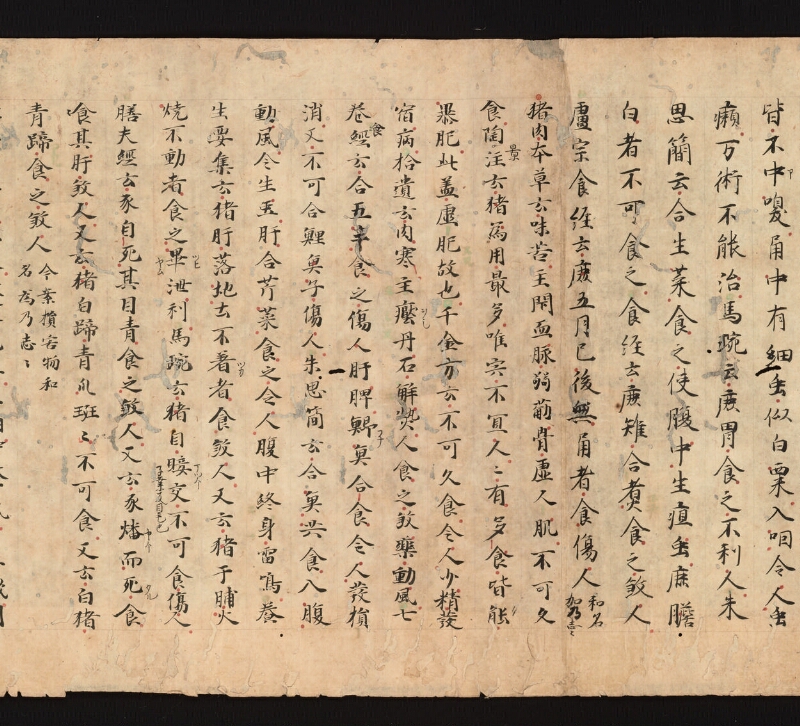 皆不中噉角中有細虫似白粟入咽令人虫
癩万術不能治馬琬云麋胃食之不利人朱
思簡云合生菜食之使腹中生疽虫麻膽
白者不可食之食經云麋雉合煮食之敓人
盧宗食經云麋五月已後無角者食傷人 和名
加乃之々
猪肉本草云味苦主閇血脉弱筋骨虚人肌不可久
食陶注云猪為用最多唯宍不宜人々有多食皆能
暴肥此盖虚肥故也千金方云不可久食令人少精發
宿病拾遺云肉寒主壓丹石解熱人食之敓藥動風七
巻食經云合五辛食之傷人肝脾鯽魚合食令人發損
消又不可合鯉魚子傷人朱思簡云合魚共食入腹
動風令生虫肝合芹菜食之令人腹中終身雷鳴養
生要集云猪肝落地土不著者食敓人又云猪干脯火
燒不動者食之畢泄利馬琬云猪目睫交不可食傷人
膳夫經云豕自死其目青食之敓人又云豕燔而死食
食其肝敓人又云猪白蹄青爪班々不可食又云白猪
青蹄食之敓人 今案損害物和
名為乃志々